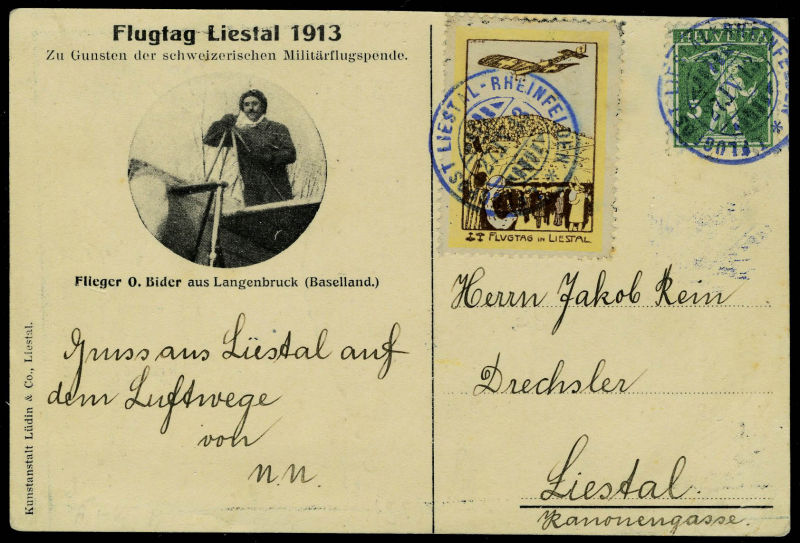 Flugtag Liestal 1913
Zu Gunsten der schweizerischen Militärflugspende.
Flieger O. Bider aus Langenbruck (Baselland.)
Kunstanstalt Lüdin & Co., Liestal.
Gruss aus Liestal auf
dem Luftwege
von
N.N.
LIESTAL-RHEINFELDEN
FLUGTAG IN LIESTAL
HELVETIA
Herrn Jakob Rein
Drechsler
Liestal.
Kanonengasse.